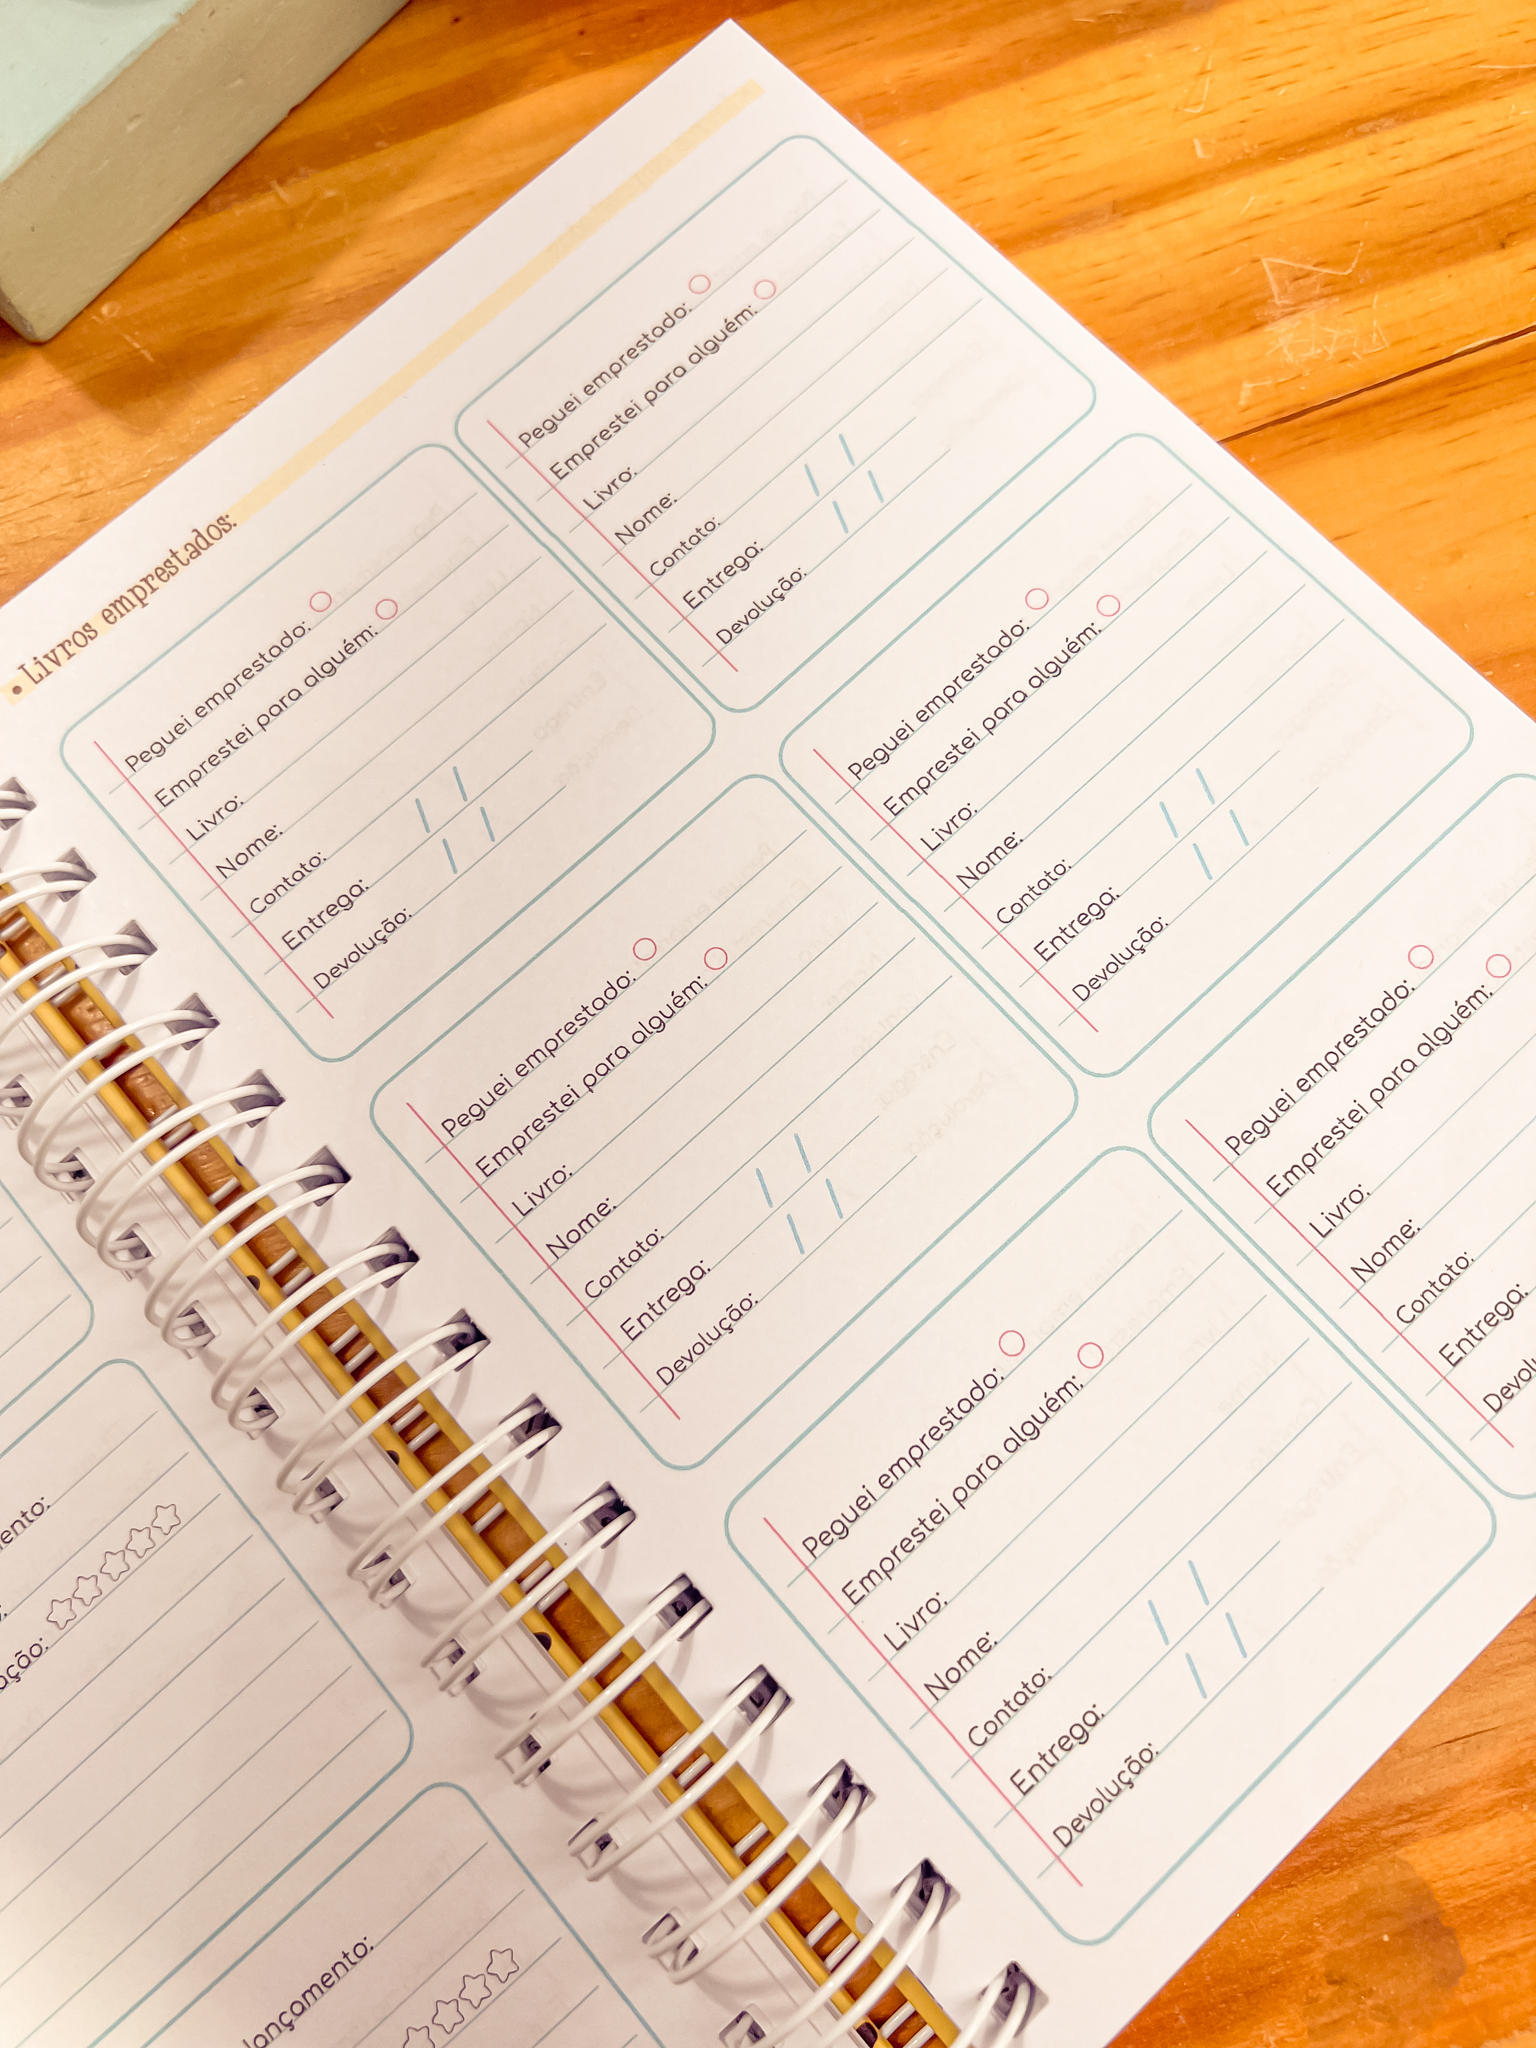 • Livros emprestados:
Peguei emprestado:
Emprestei para alguém:
Livro:
Nome:
Contato:
Entrega: / /
Devolução: / /
Peguei emprestado:
Emprestei para alguém:
Livro:
Nome:
Contato:
Entrega: / /
Devolução: / /
Peguei emprestado:
Emprestei para alguém:
Livro:
Nome:
Contato:
Entrega: / /
Devolução: / /
Peguei emprestado:
Emprestei para alguém:
Livro:
Nome:
Contato:
Entrega: / /
Devolução: / /
Peguei emprestado:
Emprestei para alguém:
Livro:
Nome:
Contato:
Entrega: / /
Devolução: / /
Peguei emprestado:
Emprestei para alguém:
Livro:
Nome:
Contato:
Entrega:
Devolu
ento:
ação:
lançamento: